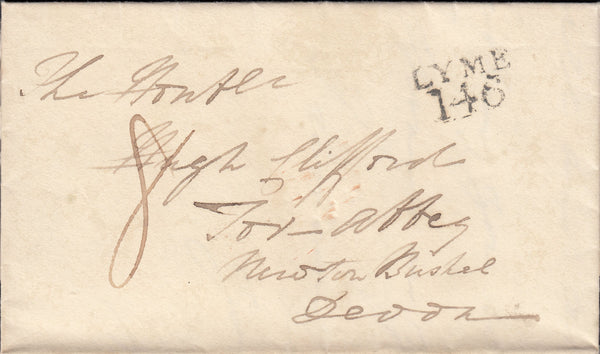 LYME
146
The Honble
8
Hugh Clifford
Tor-Abbey
Newton Bushel
Devon